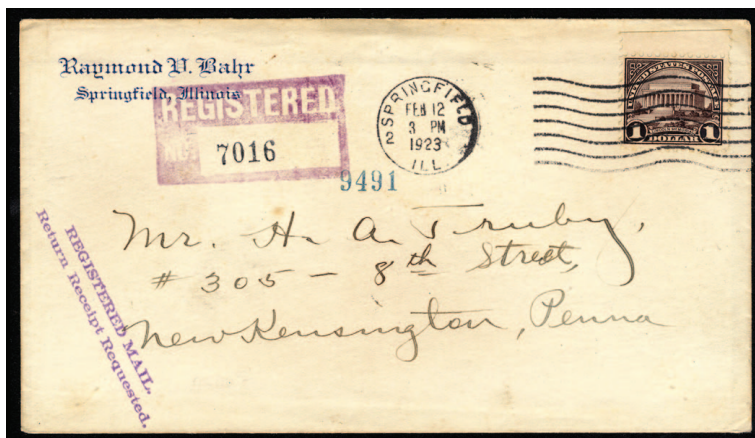 Raymond V. Bahr
Springfield, Illinois
REGISTERED
No. 7016
SPRINGFIELD
FEB 12
3 PM
1923
ILL.
2
UNITED STATES POSTAGE
1 1
DOLLAR
9491
Mr. H. A. Truby,
# 305 - 8th Street,
New Kensington, Penna
REGISTERED MAIL.
Return Receipt Requested.